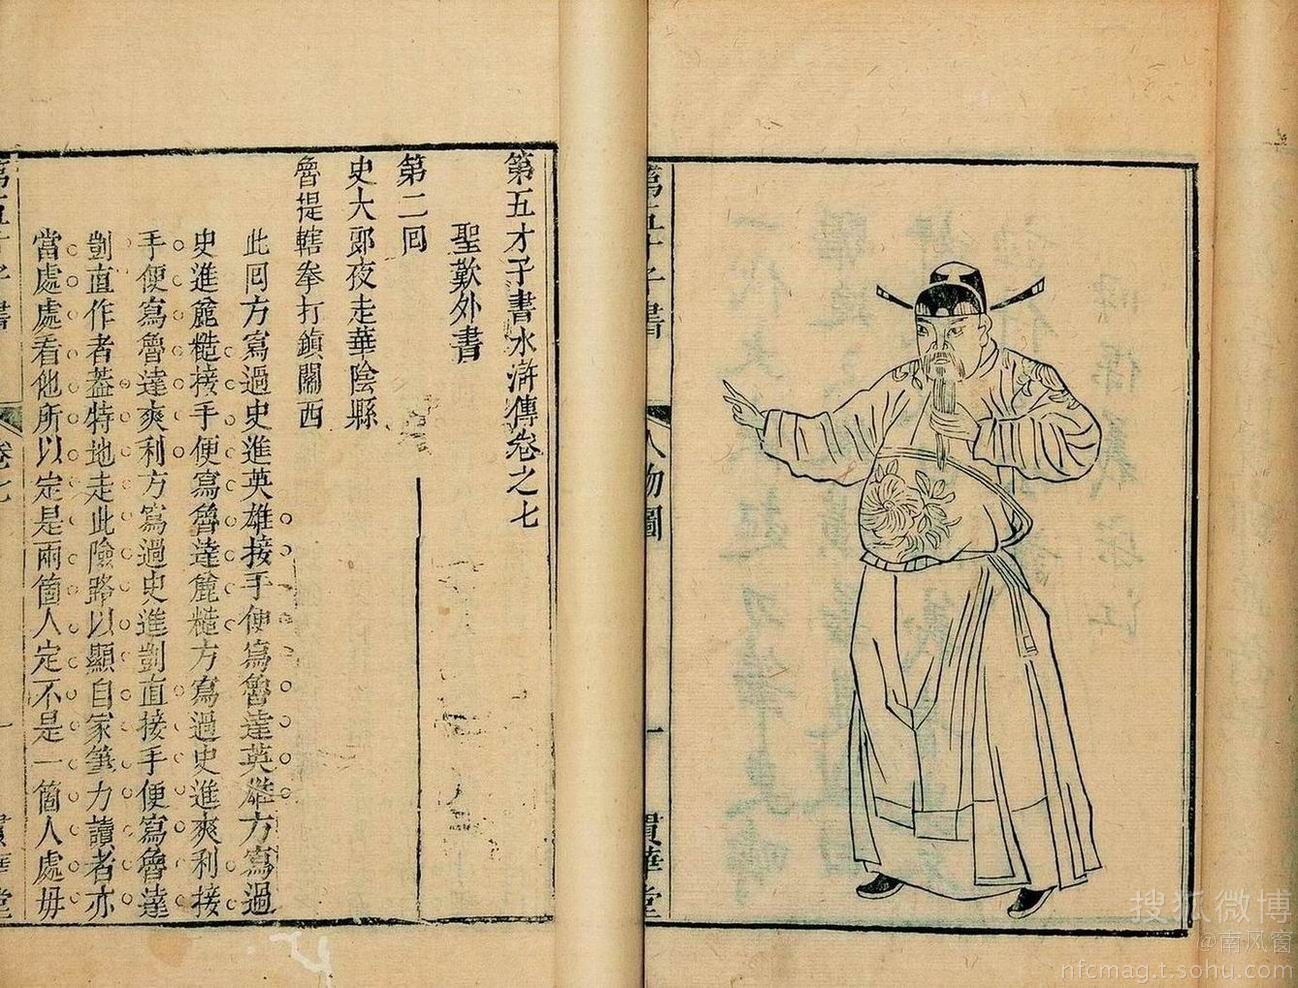 第五才子書水滸傳卷之七
聖歎外書
第二囘
史大郎夜走華陰縣
魯提轄拳打鎮關西
此囘方寫過史進英雄接手便寫魯達英雄方寫過
史進麄糙接手便寫魯達麄糙方寫過史進爽利接
手便寫魯達爽利方寫過史進剴直接手便寫魯達
剴直作者葢特地走此險路以顯自家筆力讀者亦
當處處看他所以定是兩箇人定不是一箇人處毋
第五才子書
卷七
一
貫華堂
第五才子書
人物圖
一
貫華堂
搜狐微博
@南风窗
nfcmag.t.sohu.com